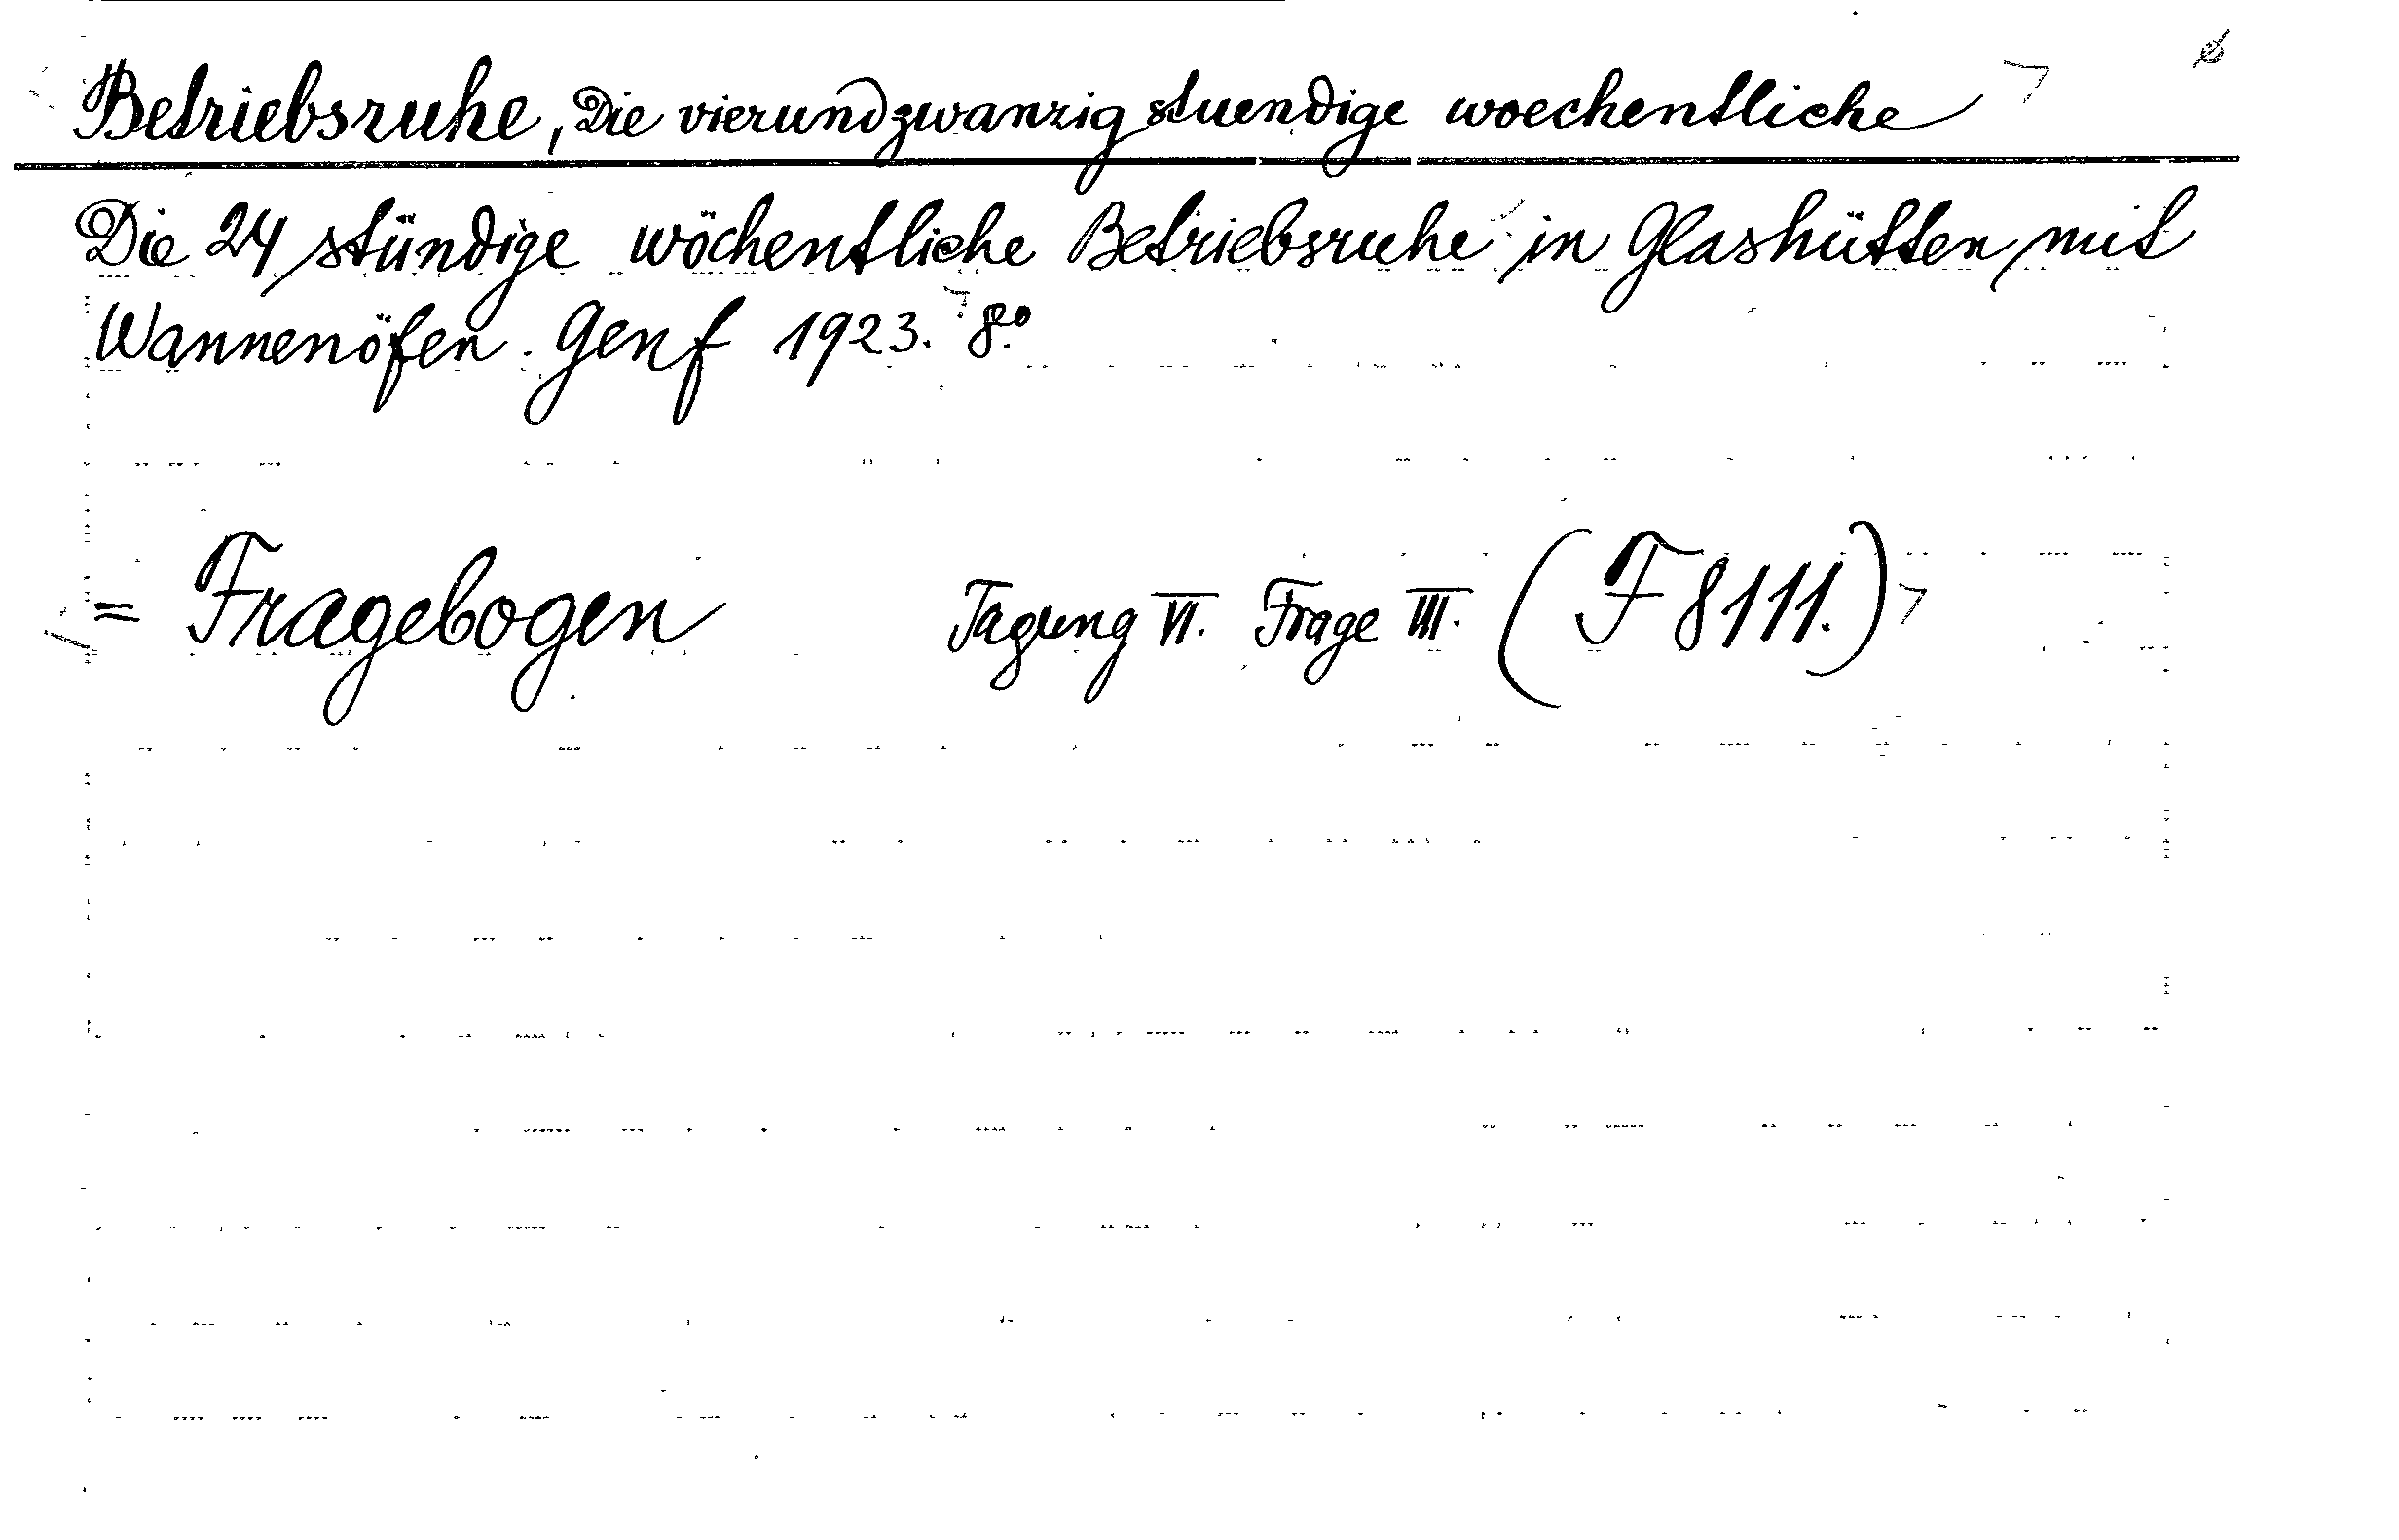 Betriebsruhe, Die vierundzwanzigstuendige woechentliche
Die 24 stündige wöchentliche Betriebsruhe in Glashütten mit
Wannenöfen. Genf 1923. 8.º
= Fragebogen Tagung VI. Frage III. (F 8111.)